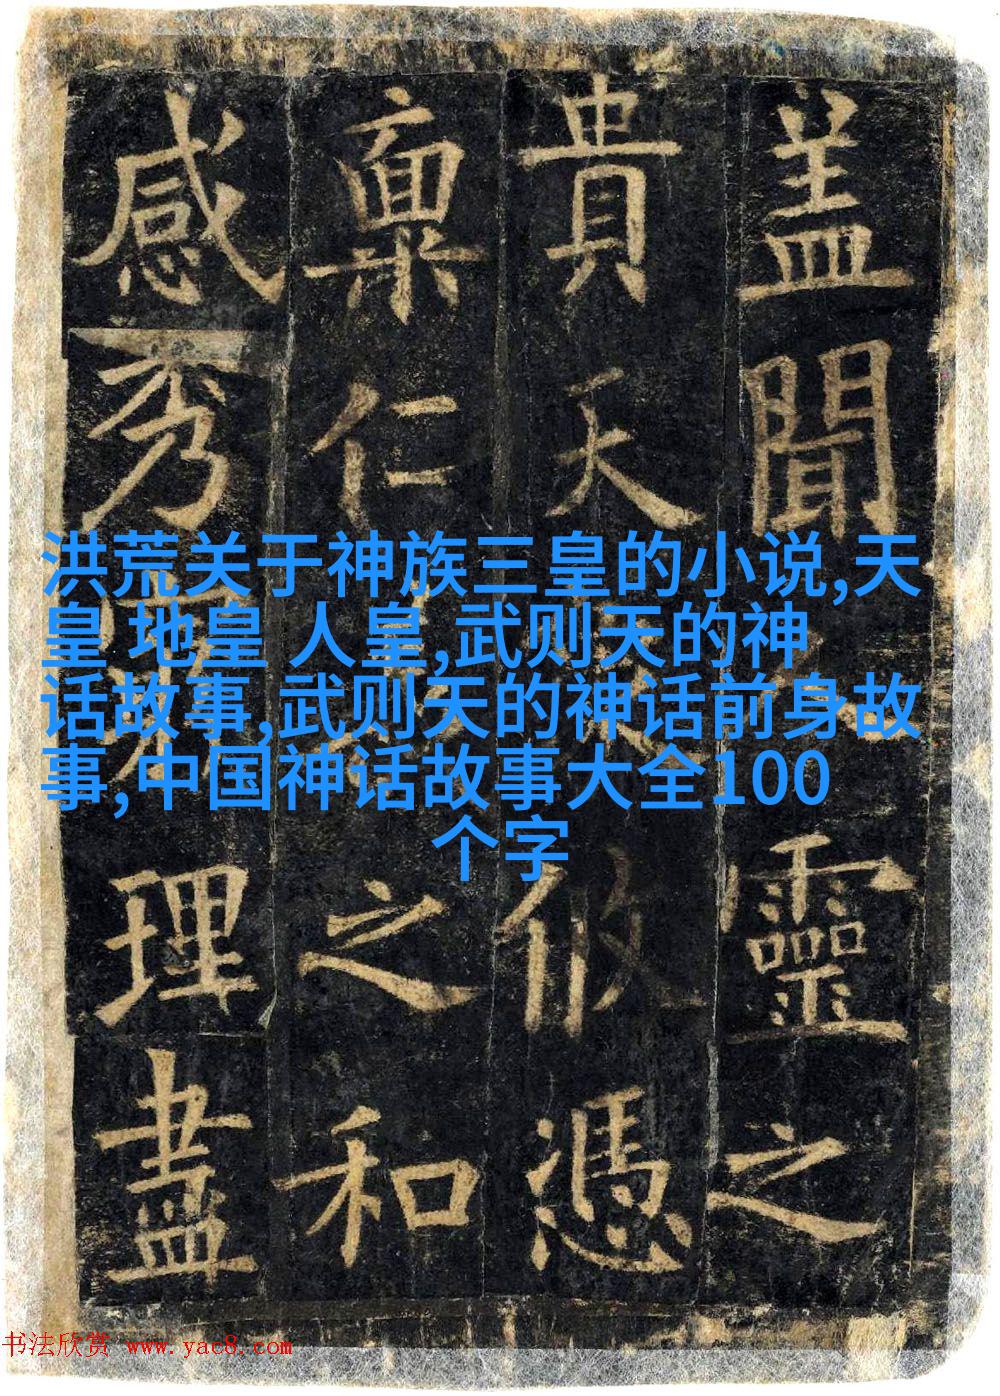 盖聞靈之
貴天攸憑
稟仁之和
感秀理盡
洪荒关于神族三皇的小说,天
皇 地皇 人皇,武则天的神
话故事,武则天的神话前身故
事,中国神话故事大全100
个字
书法欣赏 www.yac8.com